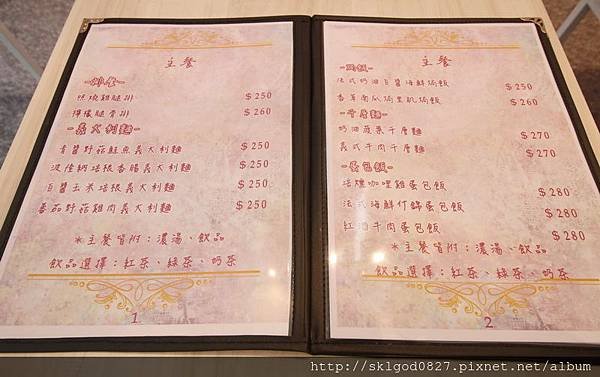 主餐
-排餐-
味燒雞腿排 $250
檸檬腿骨排 $260
-義大利麵-
青醬野菇鮭魚義大利麵 $250
波隆納培根香腸義大利麵 $250
白醬玉米培根義大利麵 $250
蕃茄野菇雞肉義大利麵 $250
*主餐皆附：濃湯、飲品
飲品選擇：紅茶、綠茶、奶茶
1
主餐
-焗飯-
法式奶油白醬海鮮焗飯 $250
香草南瓜焗里肌焗飯 $260
-千層麵-
奶油蔬菜千層麵 $270
義式牛肉千層麵 $270
-蛋包飯-
培燻咖哩雞蛋包飯 $280
法式海鮮什錦蛋包飯 $280
紅酒牛肉蛋包飯 $280
*主餐皆附：濃湯、飲品
飲品選擇：紅茶、綠茶、奶茶
2
http://sklgod0827.pixnet.net/album